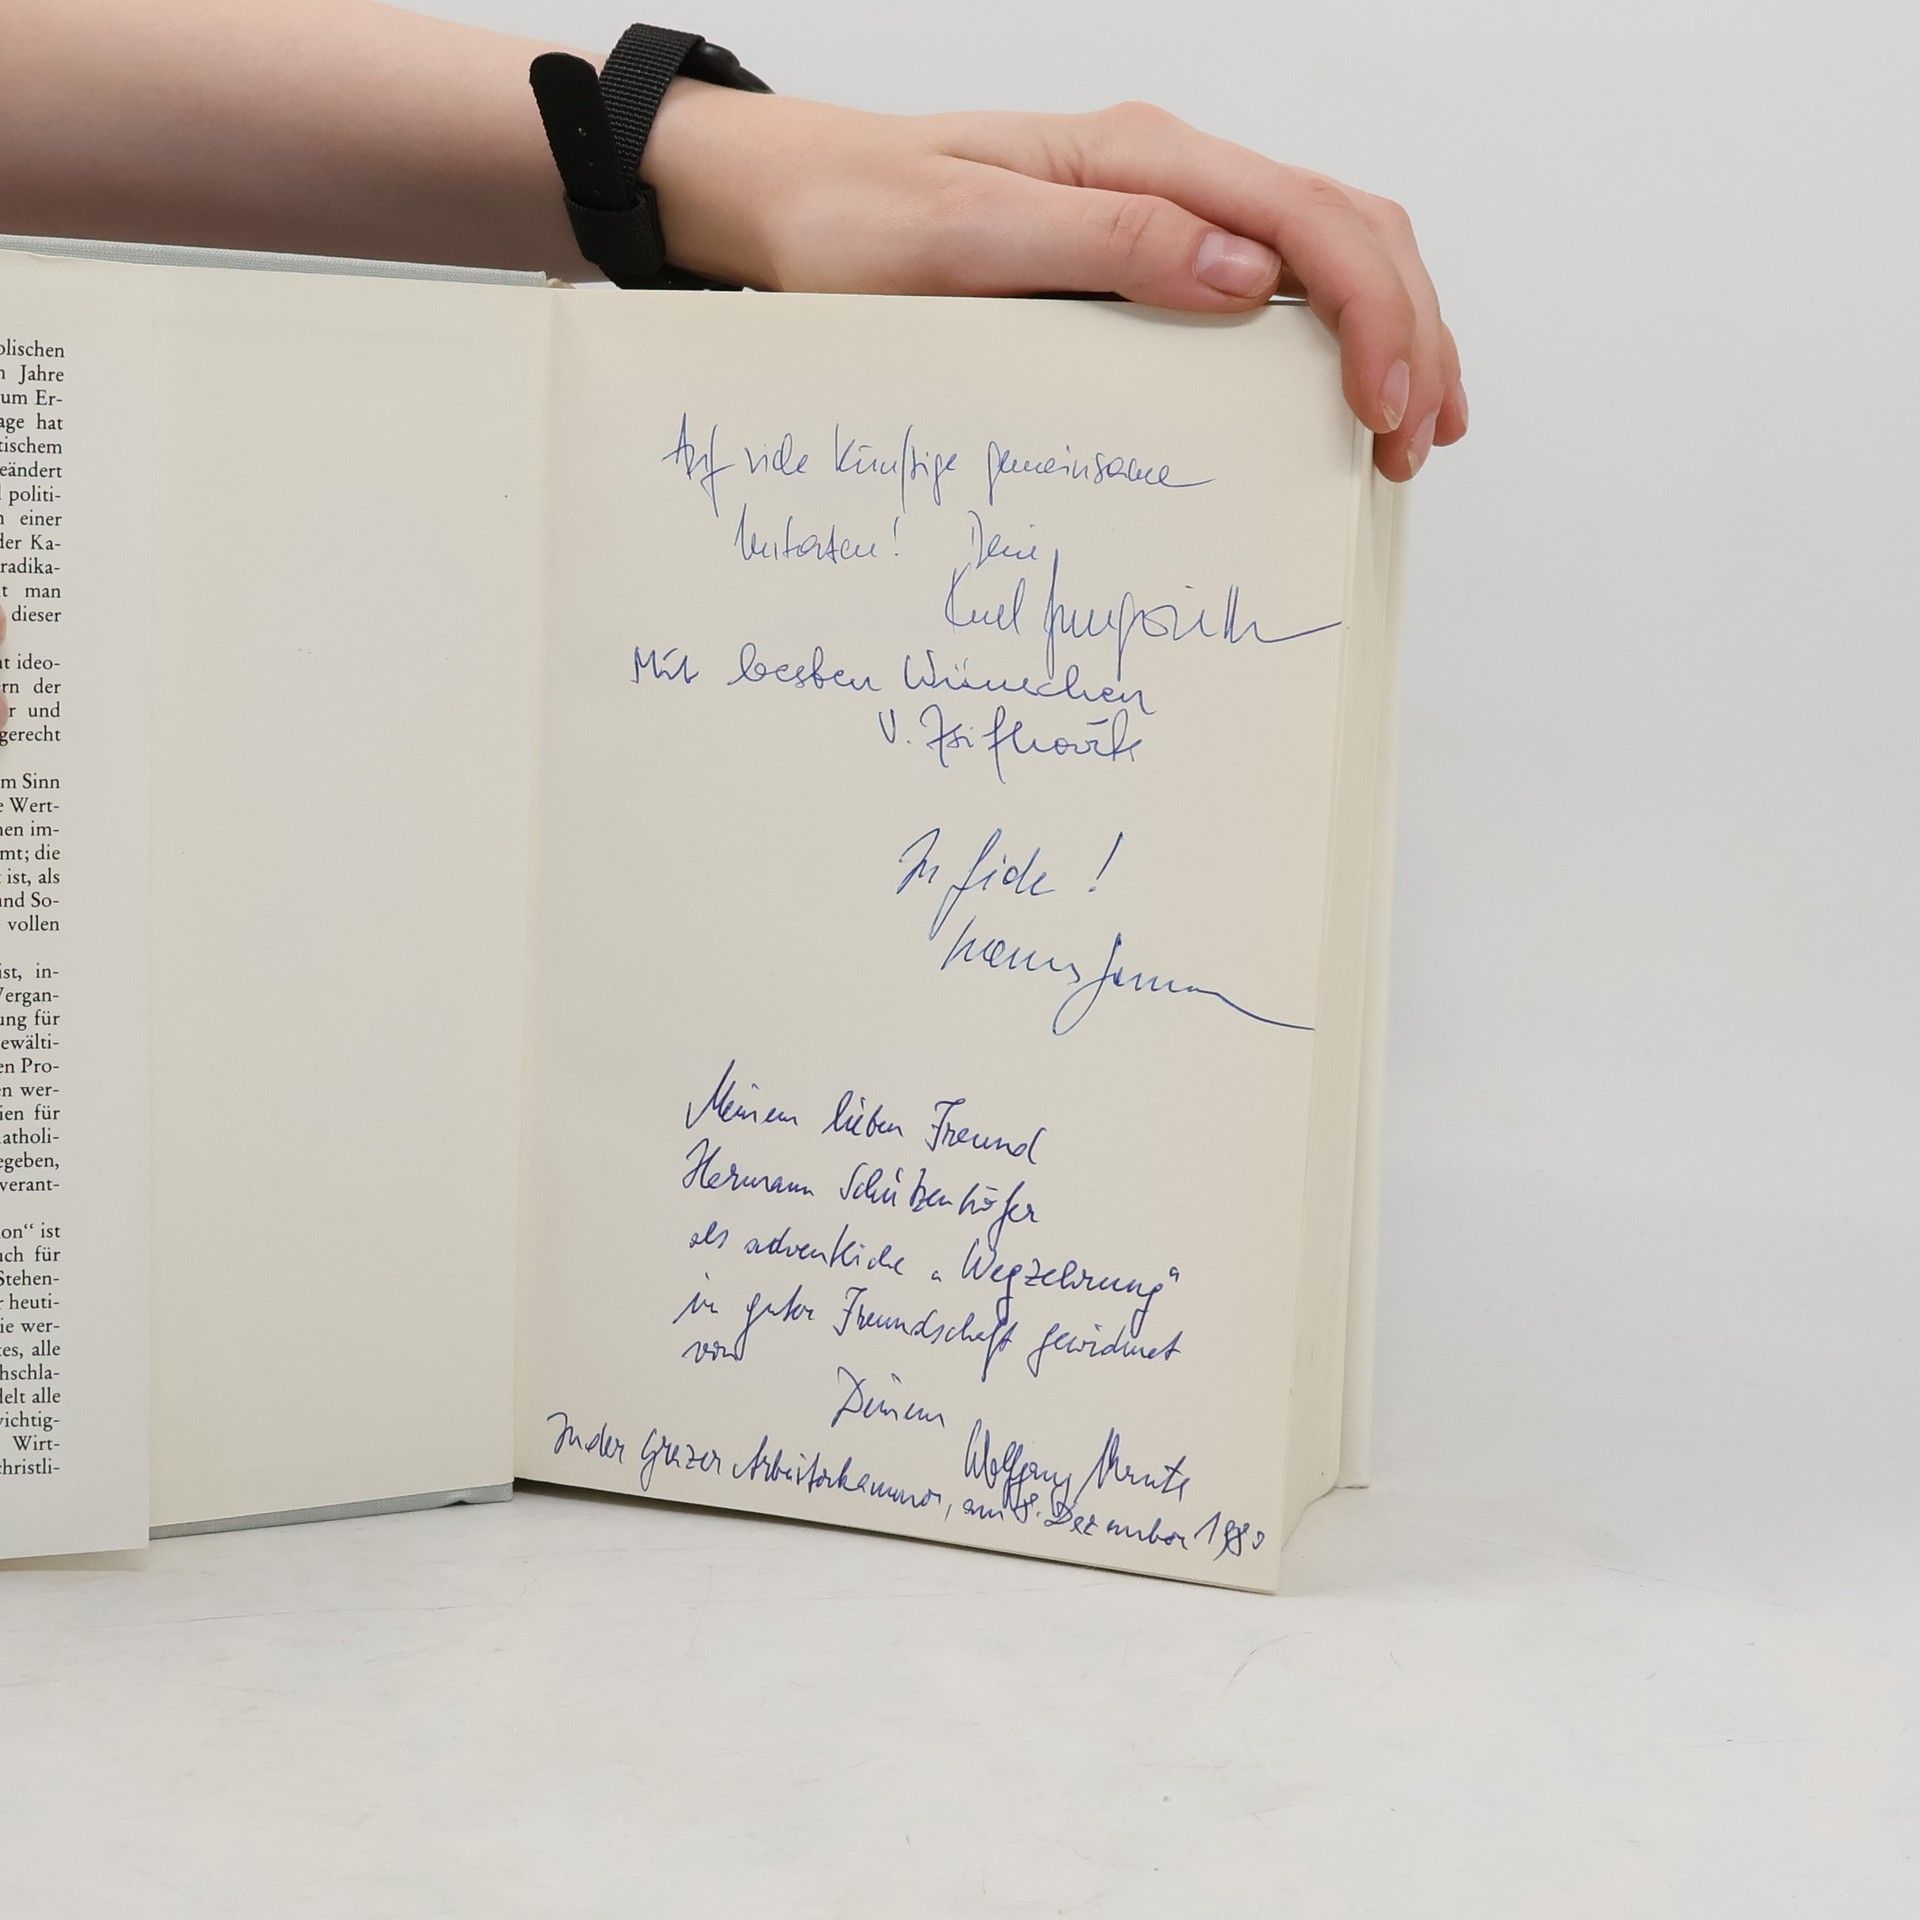 olischen
n Jahre
um Er-
age hat
tischem
eändert
politi-
n einer
der Ka-
radika-
t man
dieser
nt ideo-
ern der
r und
gerecht
m Sinn
e Wert-
nen im-
mt; die
ist, als
und So-
vollen
ist, in-
Vergan-
ung für
ewälti-
en Pro-
en wer-
ien für
atholi-
egeben,
verant-
on“ ist
uch für
Stehen-
r heuti-
ie wer-
tes, alle
hschla-
delt alle
wichtig-
Wirt-
christli-
Auf viele künftige gemeinsame
Dein
Karl
Mit besten Wünschen
V.
In fide!
Meinem lieben Freund
Hermann Schützenhöfer
als adventliche „Wegzehrung“
in guter Freundschaft gewidmet
von
Deinem
Wolfgang
In der Grazer Arbeiterkammer, am 8. Dezember 1980